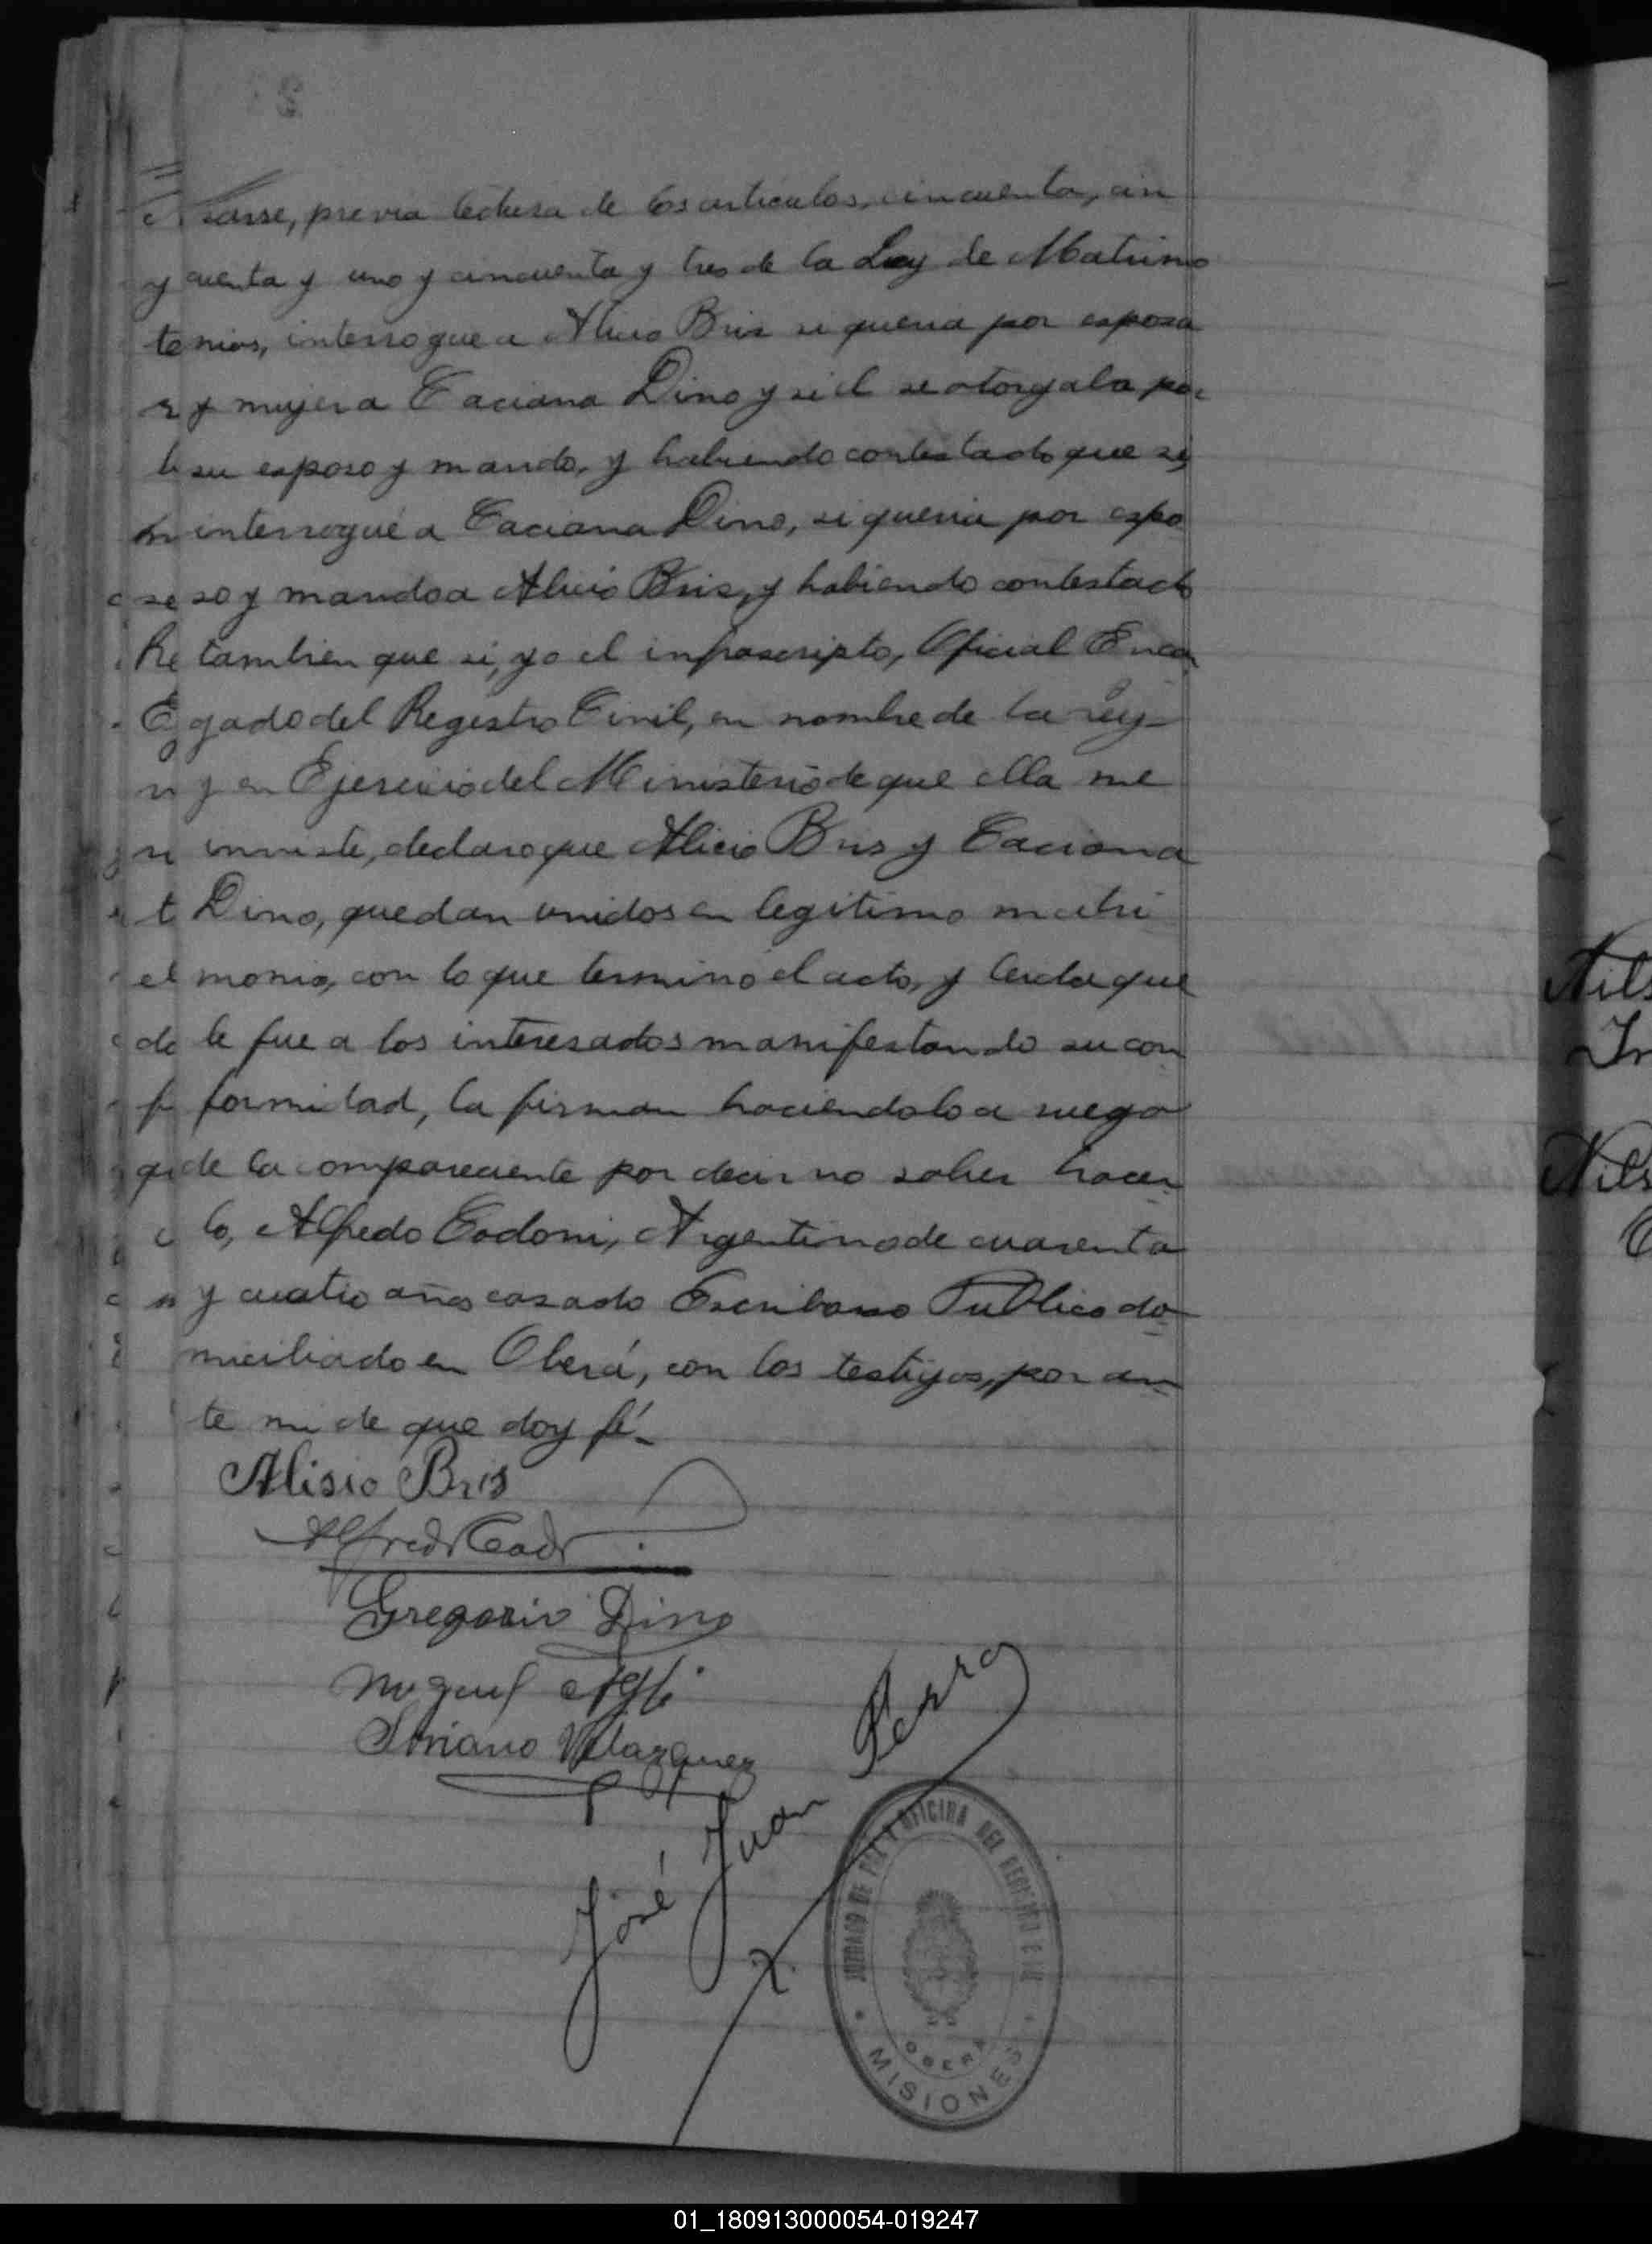 sarse, previa lectura de los articulos, cincuenta, cin
cuenta y uno y cincuenta y tres de la Ley de Matrimo
nios, interrogue a Alicio Bris si queria por esposa
y mujer a Taciana Dino y si el se otorgaba por
su esposo y marido, y habiendo contestado que si,
interrogué a Taciana Dino, si queria por espo
so y marido a Alicio Bris, y habiendo contestado
tambien que si, yo el infrascripto, Oficial Encar
gado del Registro Civil, en nombre de la Ley
y en Ejercicio del Ministerio de que ella me
inviste, declaro que Alicio Bris y Taciana
Dino, quedan unidos en legitimo matri
monio, con lo que terminó el acto, y leida que
le fue a los interesados manifestando su con
formidad, la firman haciendolo a ruego
de la compareciente por decir no saber hacer
lo, Alfredo Codoni, Argentino de cuarenta
y cuatro años casado Escribano Publico do
miciliado en Oberá, con los testigos, por an
te mi de que doy fé.
Alisio Bris
Alfredo
Gregorio Dino
Miguel
Velazquez
José Juan
JUZGADO DE PAZ Y OFICINA DEL REGISTRO CIVIL
OBERA
MISIONES
Nils
Nils
01_180913000054-019247